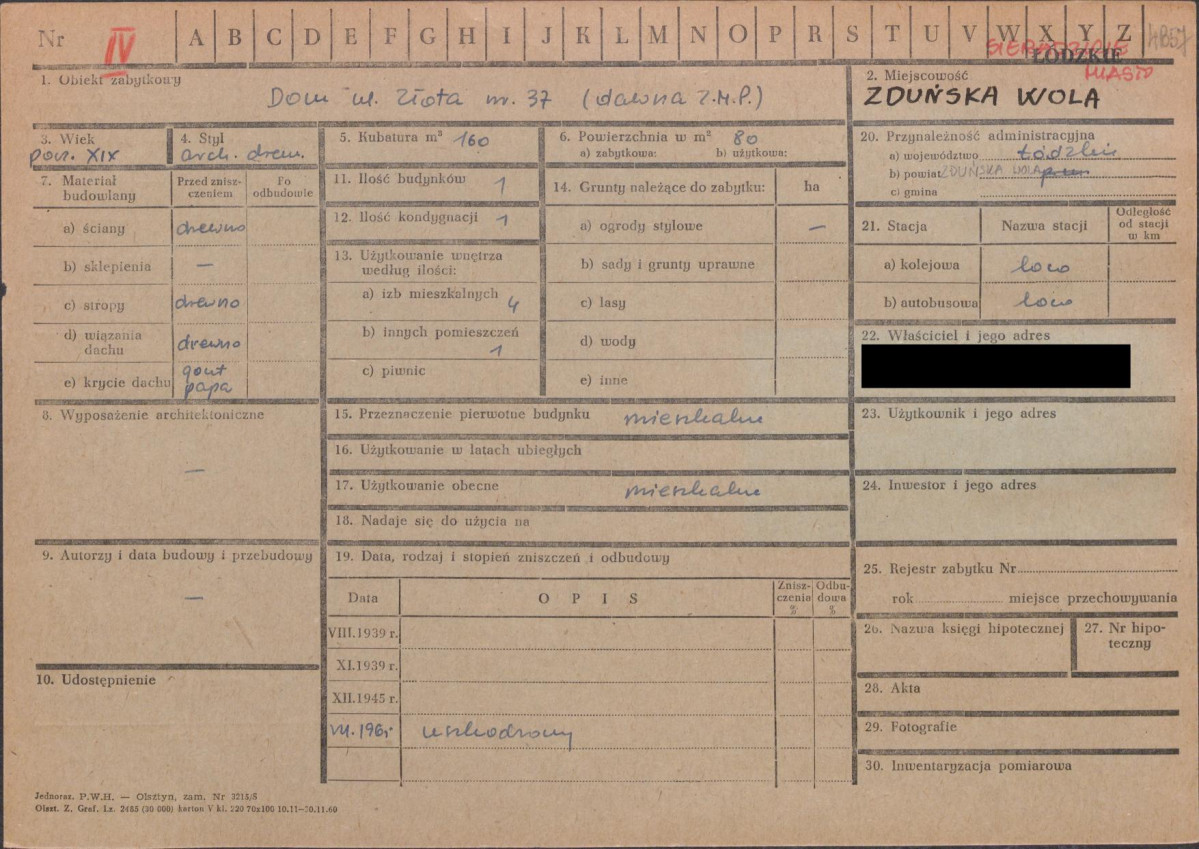 Nr IV A B C D E F G H I J K L M N O P R S T U V W X Y Z 4857
SIERADZKIE
ŁÓDZKIE
MIASTO
1. Obiekt zabytkowy
Dom ul. Złota nr. 37 (dawna Z.M.P.)
2. Miejscowość
ZDUŃSKA WOLA
3. Wiek
pocz. XIX
4. Styl
arch. drewn.
5. Kubatura m³ 160
6. Powierzchnia w m² 80
a) zabytkowa: b) użytkowa:
7. Materiał budowlany
Przed zniszczeniem
Po odbudowie
a) ściany drewno
b) sklepienia —
c) stropy drewno
d) wiązania dachu drewno
e) krycie dachu gont papa
8. Wyposażenie architektoniczne
—
9. Autorzy i data budowy i przebudowy
—
10. Udostępnienie
11. Ilość budynków 1
12. Ilość kondygnacji 1
13. Użytkowanie wnętrza
według ilości:
a) izb mieszkalnych 4
b) innych pomieszczeń 1
c) piwnic
14. Grunty należące do zabytku: ha
a) ogrody stylowe —
b) sady i grunty uprawne
c) lasy
d) wody
e) inne
15. Przeznaczenie pierwotne budynku mieszkalne
16. Użytkowanie w latach ubiegłych
17. Użytkowanie obecne mieszkalne
18. Nadaje się do użycia na
19. Data, rodzaj i stopień zniszczeń i odbudowy
Data OPIS Zniszczenia % Odbudowa %
VIII.1939 r.
XI.1939 r.
XII.1945 r.
uszkodzony
20. Przynależność administracyjna
a) województwo Łódzkie
b) powiat ZDUŃSKA WOLA
c) gmina
21. Stacja Nazwa stacji Odległość od stacji w km
a) kolejowa loco
b) autobusowa loco
22. Właściciel i jego adres
23. Użytkownik i jego adres
24. Inwestor i jego adres
25. Rejestr zabytku Nr
rok miejsce przechowywania
26. Nazwa księgi hipotecznej
27. Nr hipoteczny
28. Akta
29. Fotografie
30. Inwentaryzacja pomiarowa
Jednoraz. P.W.H. — Olsztyn, zam. Nr 3213/S
Olszt. Z. Graf. Lz. 2485 (30 000) karton V kl. 220 70x100 10.11—30.11.60